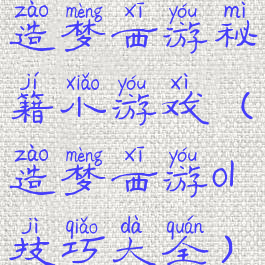 zào mèng xī yóu mì
造梦西游秘
jí xiǎo yóu xì
籍小游戏（
zào mèng xī yóu
造梦西游OI
jì qiǎo dà quán
技巧大全）